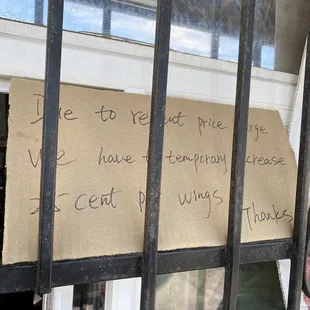 Due to re nt price urge
We have temporary crease
25 cent p wings
Thanks